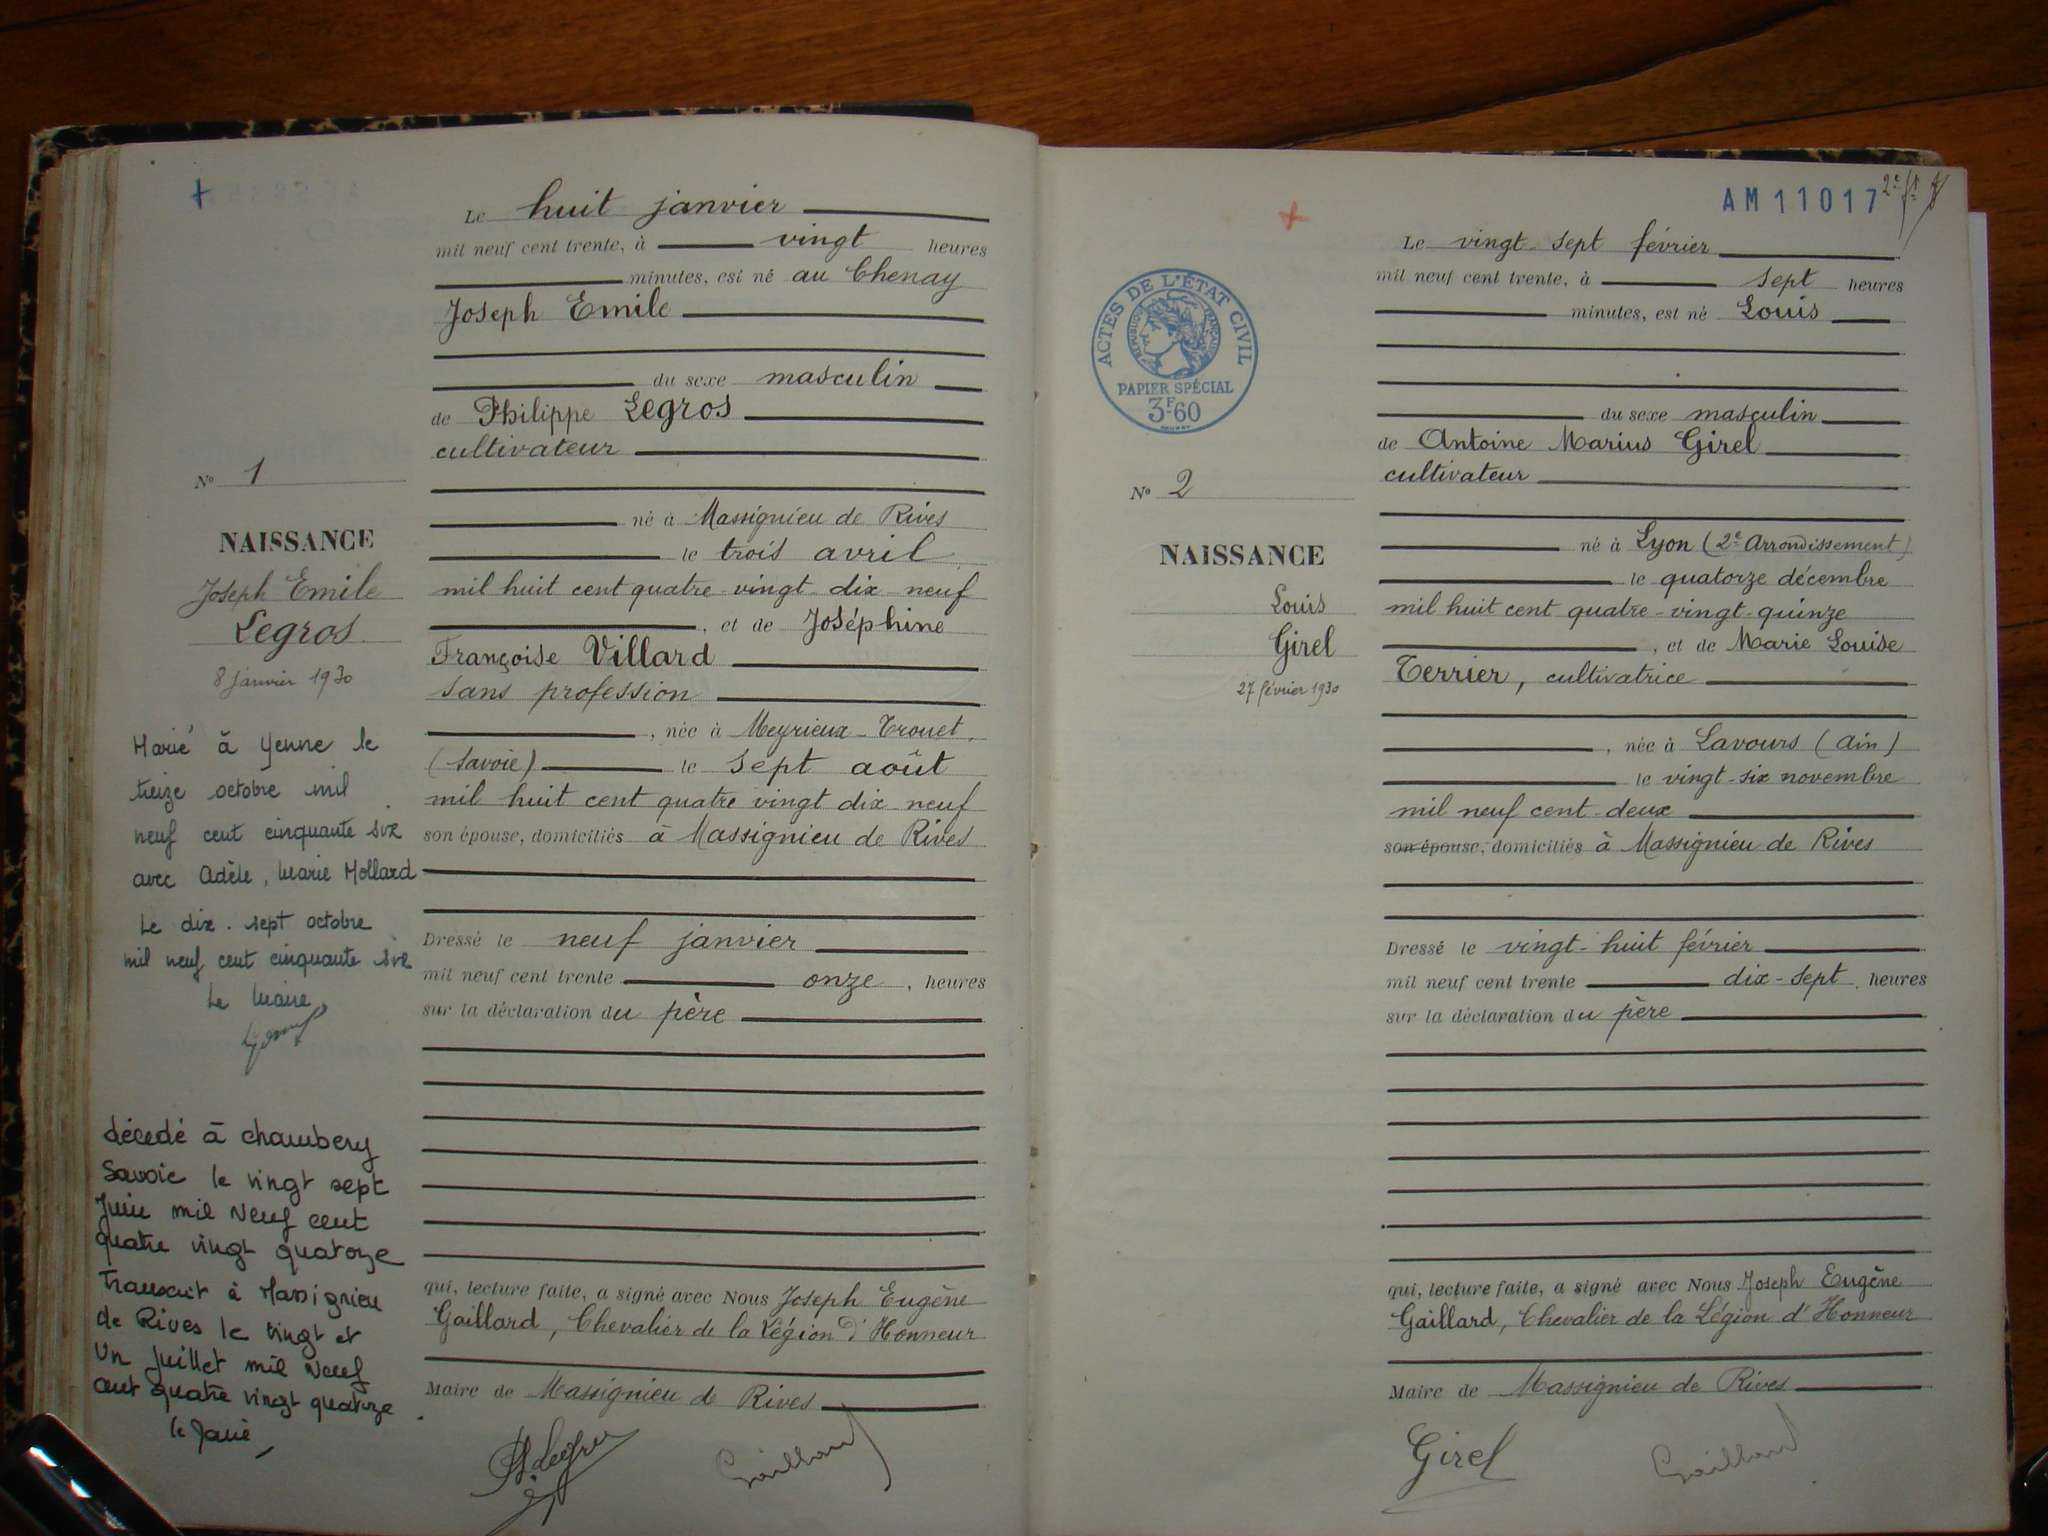 Le huit janvier
mil neuf cent trente, à vingt heures
minutes, est né au Chenay
Joseph Emile
du sexe masculin
de Philippe Legros
cultivateur
né à Massignieu de Rives
le trois avril
mil huit cent quatre-vingt dix neuf
, et de Joséphine
Françoise Villard
sans profession
, née à Meyrieux-Trouet,
(Savoie) le sept août
mil huit cent quatre vingt dix neuf
son épouse, domiciliés à Massignieu de Rives
Dressé le neuf janvier
mil neuf cent trente onze, heures
sur la déclaration du père
qui, lecture faite, a signé avec Nous Joseph Eugène
Gaillard, Chevalier de la Légion d'Honneur
Maire de Massignieu de Rives
Gaillard
No 1
NAISSANCE
Joseph Emile
Legros
8 janvier 1930
Marié à Yenne le
treize octobre mil
neuf cent cinquante six
avec Adèle, Marie Mollard
Le dix-sept octobre
mil neuf cent cinquante six
Le Maire
décédé à Chambery
Savoie le vingt sept
Juin mil Neuf cent
quatre vingt quatorze
Transcrit à Massignieu
de Rives le vingt et
Un juillet mil Neuf
cent quatre vingt quatorze
le Maire
AM11017
ACTES DE L'ÉTAT CIVIL
RÉPUBLIQUE FRANÇAISE
PAPIER SPÉCIAL
3F-60
No 2
NAISSANCE
Louis
Girel
27 février 1930
Le vingt-sept février
mil neuf cent trente, à sept heures
minutes, est né Louis
du sexe masculin
de Antoine Marius Girel
cultivateur
né à Lyon (2e Arrondissement)
le quatorze décembre
mil huit cent quatre-vingt-quinze
, et de Marie Louise
Terrier, cultivatrice
, née à Lavours (Ain)
le vingt-six novembre
mil neuf cent deux
son épouse, domiciliés à Massignieu de Rives
Dressé le vingt-huit février
mil neuf cent trente dix-sept, heures
sur la déclaration du père
qui, lecture faite, a signé avec Nous Joseph Eugène
Gaillard, Chevalier de la Légion d'Honneur
Maire de Massignieu de Rives
Girel Gaillard